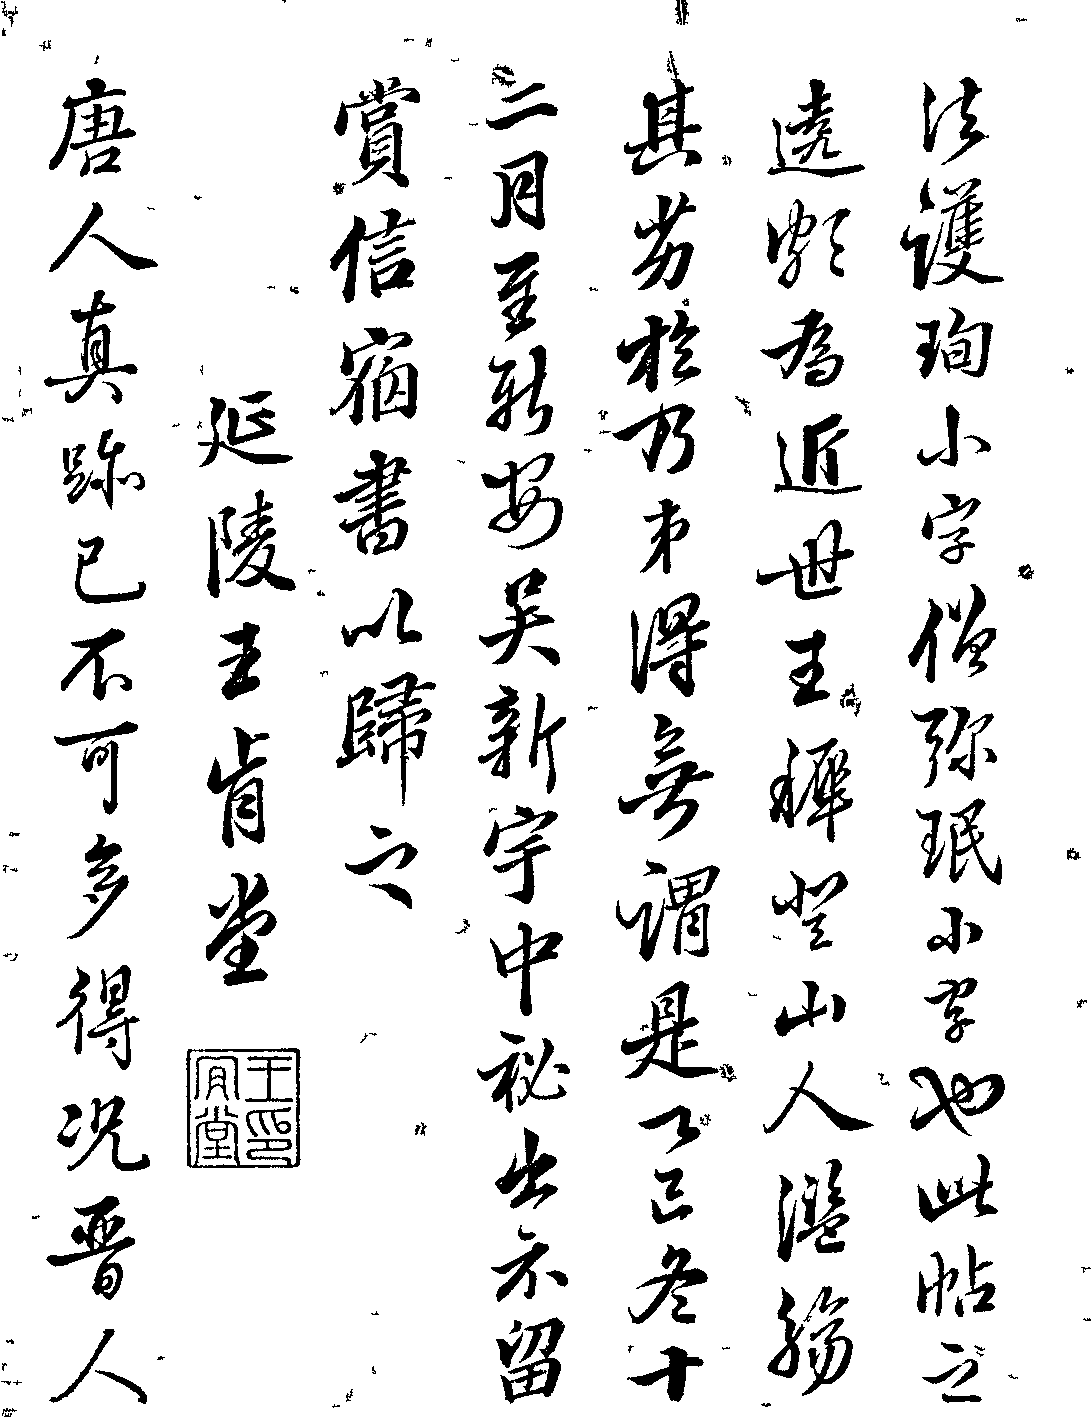 法護珣小字僧彌珉小字也此帖之
遶頗為近世王穉登山人濫觴
其劣於乃弟得無謂是乙巳冬十
二月至新安吳新宇中秘出示留
賞信宿書以歸之
延陵王肯堂
王印肎堂
唐人真跡已不可多得況晉人